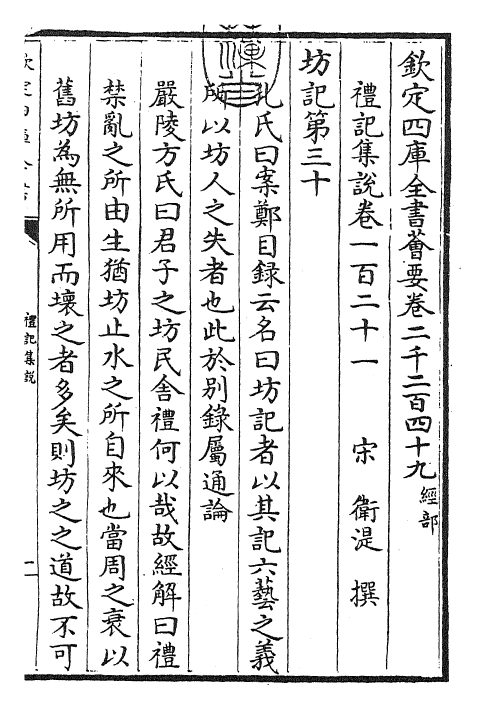 欽定四庫全書薈要卷二千二百四十九 經部
禮記集說卷一百二十一 宋 衛湜 撰
坊記第三十
孔氏曰案鄭目録云名曰坊記者以其記六藝之義
所以坊人之失者也此於別錄屬通論
嚴陵方氏曰君子之坊民舎禮何以哉故經解曰禮
禁亂之所由生猶坊止水之所自來也當周之衰以
舊坊為無所用而壞之者多矣則坊之之道故不可
禮記集說